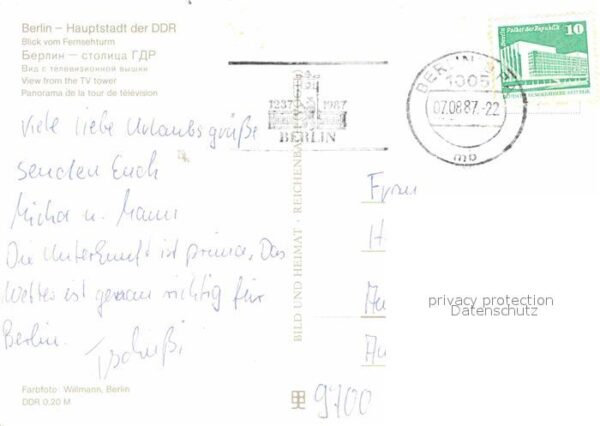 Berlin – Hauptstadt der DDR
Blick vom Fernsehturm
Берлин – столица ГДР
Вид с телевизионной вышки
View from the TV tower
Panorama de la tour de télévision
Viele liebe Urlaubsgrüße
senden Euch
Micha u.
Die Unterkunft ist prima. Das
Wetter ist genau richtig für
Berlin.
Tschüßi
Farbfoto: Willmann, Berlin
DDR 0,20 M
BILD UND HEIMAT · REICHENBACH
1237 1987
BERLIN
BERLIN
1005
07.08.87.-22
mb
Berlin Palast der Republik
10
Frau
H
Au
Au
9700
privacy protection
Datenschutz